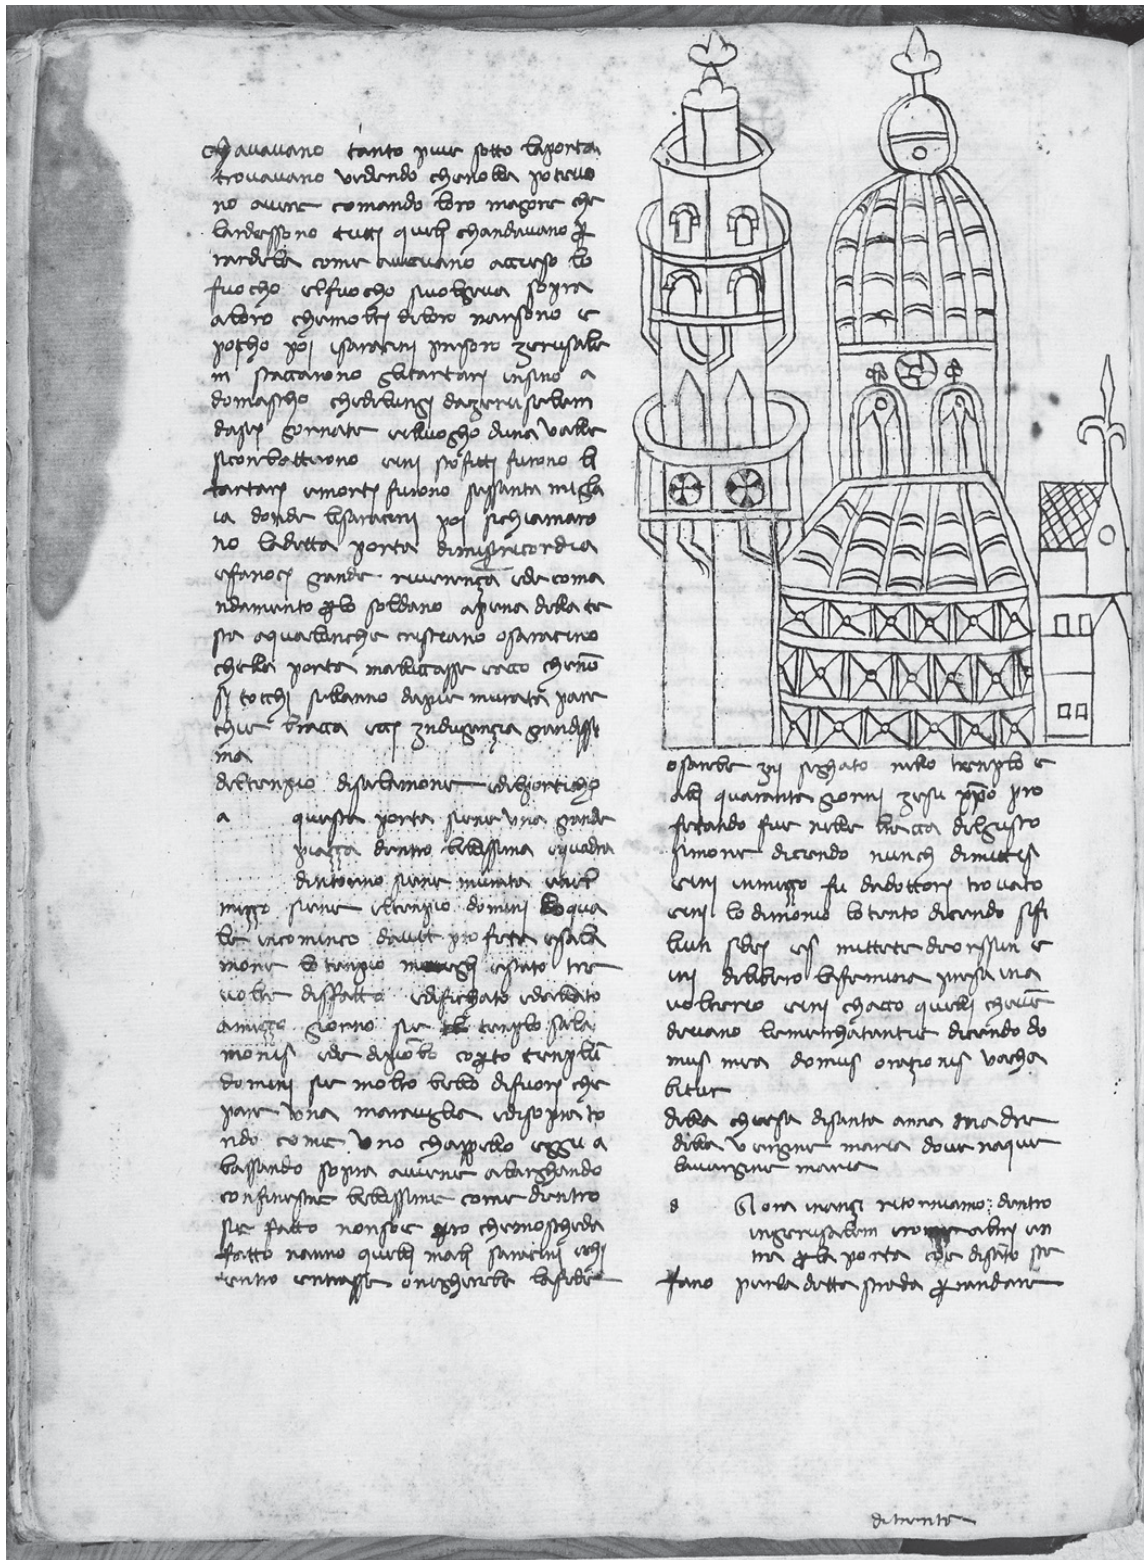 chavavano tanto piue sotto laporta
trovavano vedendo chenolla poteva
no avere comando loro magore che
lardessono tutti queli chandavano per
vardela come avevano acceso lo
fuocho elfuocho sivolgeva sopra
aloro chemolti deloro narsono e
pocho poi isaracini presoro zerusale
m scaccarono glitartari insino a
domascho chedelungi dazerusalem
dasei gornate elluogho duna valle
siconbatterono eivi scofitti furono li
tartari emorti furono sessanta migla
ia donde lisaracini poi sichiamaro
no ladetta porta dimisericordia
efanoci grande riverença ede coma
ndamento per lo soldano apena della te
sta aqualunche cristiano osaracino
chella porta malliccasse ecco cheno
si tocchi sellanno dapie murata pare
chie bracca ecci zndugançia grandissi
ma
deltenpio disalamone edelporticho
a questa porta siene una grande
piazza dentro bellissima equadra
dintorno siene murata enel
mezzo siene eltenpio domini loqua
le incominco davit profeta esala
mone lo tenpio estato tre
volte disfatto edifichato edallato
amezzo giorno sie templo sala
monis ede dipionbo coperto templum
domini sie molto bello difuori che
pare una maraviglia edisopra to
ndo come uno chappello eggu a
bassando sopra aviene alarghando
confinestre bellissime come dentro
sie fatto nonsoe pero chemoscheda
fatto nanno quelli mali saracini echi
entro entrasse onegherebe lafede
osarebe zvi seghato nello templo e
ali quaranta giorni zesu christo pro
fetando fue nelle bracca delgusto
simone dicendo nunch dimittis
eivi inmezzo fu dadottori trovato
eivi lo dimonio lotento dicendo sifi
lius dei es mittete deorssun e
ivi delibero lafemina presa ina
volterio eivi chacco quelli cheven
devano lemerchatantie dicendo do
mus mea domus orazionis vocha
bitur
della chiesa disanta anna madre
della vergine maria dove naque
lavergine maria
o Ora inanzi ritorniamo dentro
ingerusalem
tra per la porta che disanto ste
fano perla detta strada per andare
diricente